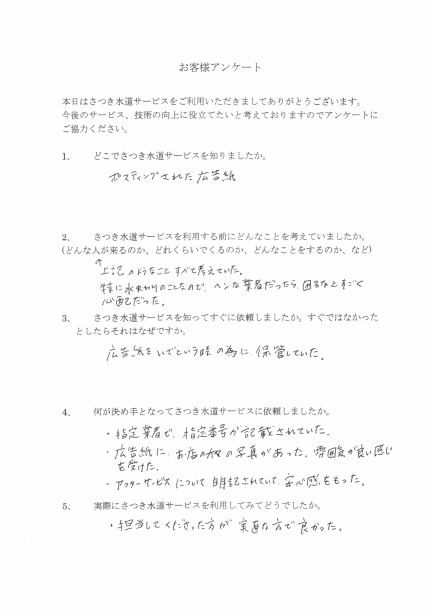 お客様アンケート
本日はさつき水道サービスをご利用いただきましてありがとうございます。
今後のサービス、技術の向上に役立てたいと考えておりますのでアンケートに
ご協力ください。
1、 どこでさつき水道サービスを知りましたか。
ポスティングされた広告紙
2、 さつき水道サービスを利用する前にどんなことを考えていましたか。
(どんな人が来るのか、どれくらいでくるのか、どんなことをするのか、など)
↑上記のようなことすべて考えていた。
特に水まわりのことなので、ヘンな業者だったら困るなとすごく
心配だった。
3、 さつき水道サービスを知ってすぐに依頼しましたか。すぐではなかった
としたらそれはなぜですか。
広告紙をいざという時の為に、保管していた。
4、 何が決め手となってさつき水道サービスに依頼しましたか。
・指定業者で、指定番号が記載されていた。
・広告紙に、お店の の写真があった。雰囲気が良い感じ
を受けた。
・アフターサービスについて明記されていて、安心感をもった。
5、 実際にさつき水道サービスを利用してみてどうでしたか。
・担当してくださった方が実直な方で良かった。